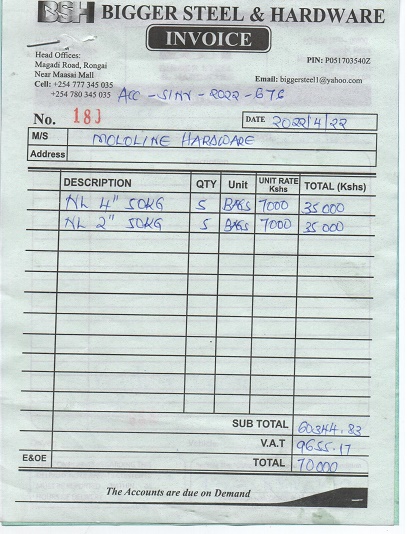 BSH BIGGER STEEL & HARDWARE
INVOICE
Head Offices:
Magadi Road, Rongai
Near Maasai Mall
Cell: +254 777 345 035
+254 780 345 035
PIN: P051703540Z
Email: biggersteel1@yahoo.com
ACC - SINV - 2022 - 876
No. 183
DATE 2022/4/22
M/S MOLOLINE HARDWARE
Address
DESCRIPTION QTY Unit UNIT RATE Kshs TOTAL (Kshs)
NL 4" 50KG 5 BAGS 7000 35000
NL 2" 50KG 5 BAGS 7000 35000
SUB TOTAL 60344.83
V.A.T 9655.17
E&OE TOTAL 70000
The Accounts are due on Demand